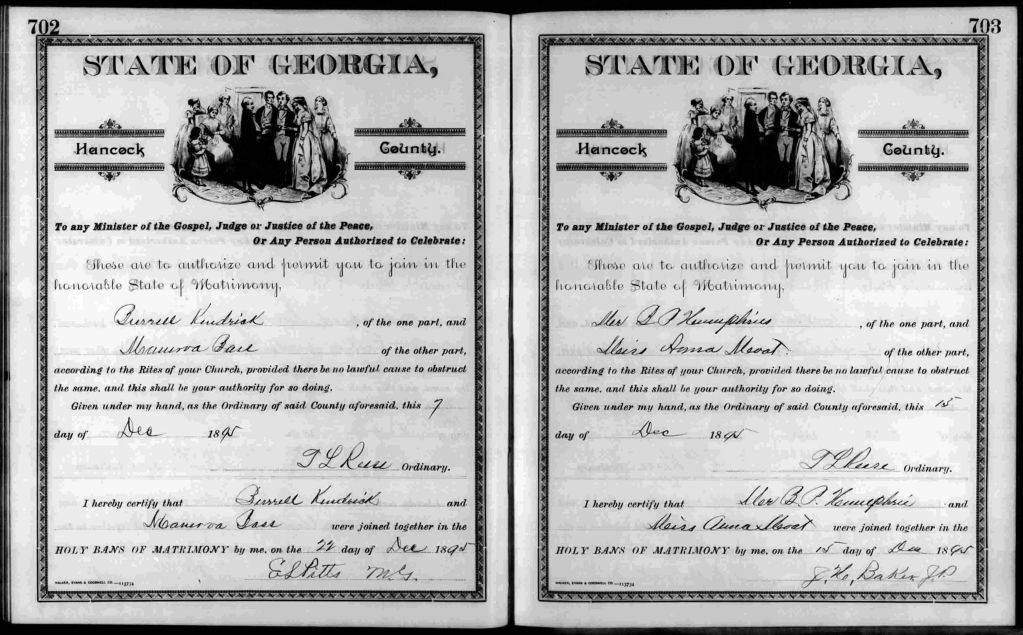 702
STATE OF GEORGIA,
Hancock County.
To any Minister of the Gospel, Judge or Justice of the Peace,
Or Any Person Authorized to Celebrate:
These are to authorize and permit you to join in the
honorable State of Matrimony,
Burrell Kendrick, of the one part, and
Manerva Bass of the other part,
according to the Rites of your Church, provided there be no lawful cause to obstruct
the same, and this shall be your authority for so doing.
Given under my hand, as the Ordinary of said County aforesaid, this 7
day of Dec 1895
T L Reese Ordinary.
I hereby certify that Burrell Kendrick and
Manerva Bass were joined together in the
HOLY BANS OF MATRIMONY by me, on the 22 day of Dec 1895
E S Pitts M G.
703
STATE OF GEORGIA,
Hancock County.
To any Minister of the Gospel, Judge or Justice of the Peace,
Or Any Person Authorized to Celebrate:
These are to authorize and permit you to join in the
honorable State of Matrimony,
B P Humphries, of the one part, and
Anna of the other part,
according to the Rites of your Church, provided there be no lawful cause to obstruct
the same, and this shall be your authority for so doing.
Given under my hand, as the Ordinary of said County aforesaid, this 15
day of Dec 1895
T L Reese Ordinary.
I hereby certify that B. P. Humphrie and
Miss Anna were joined together in the
HOLY BANS OF MATRIMONY by me, on the 15 day of Dec 1895
Baker J.P.